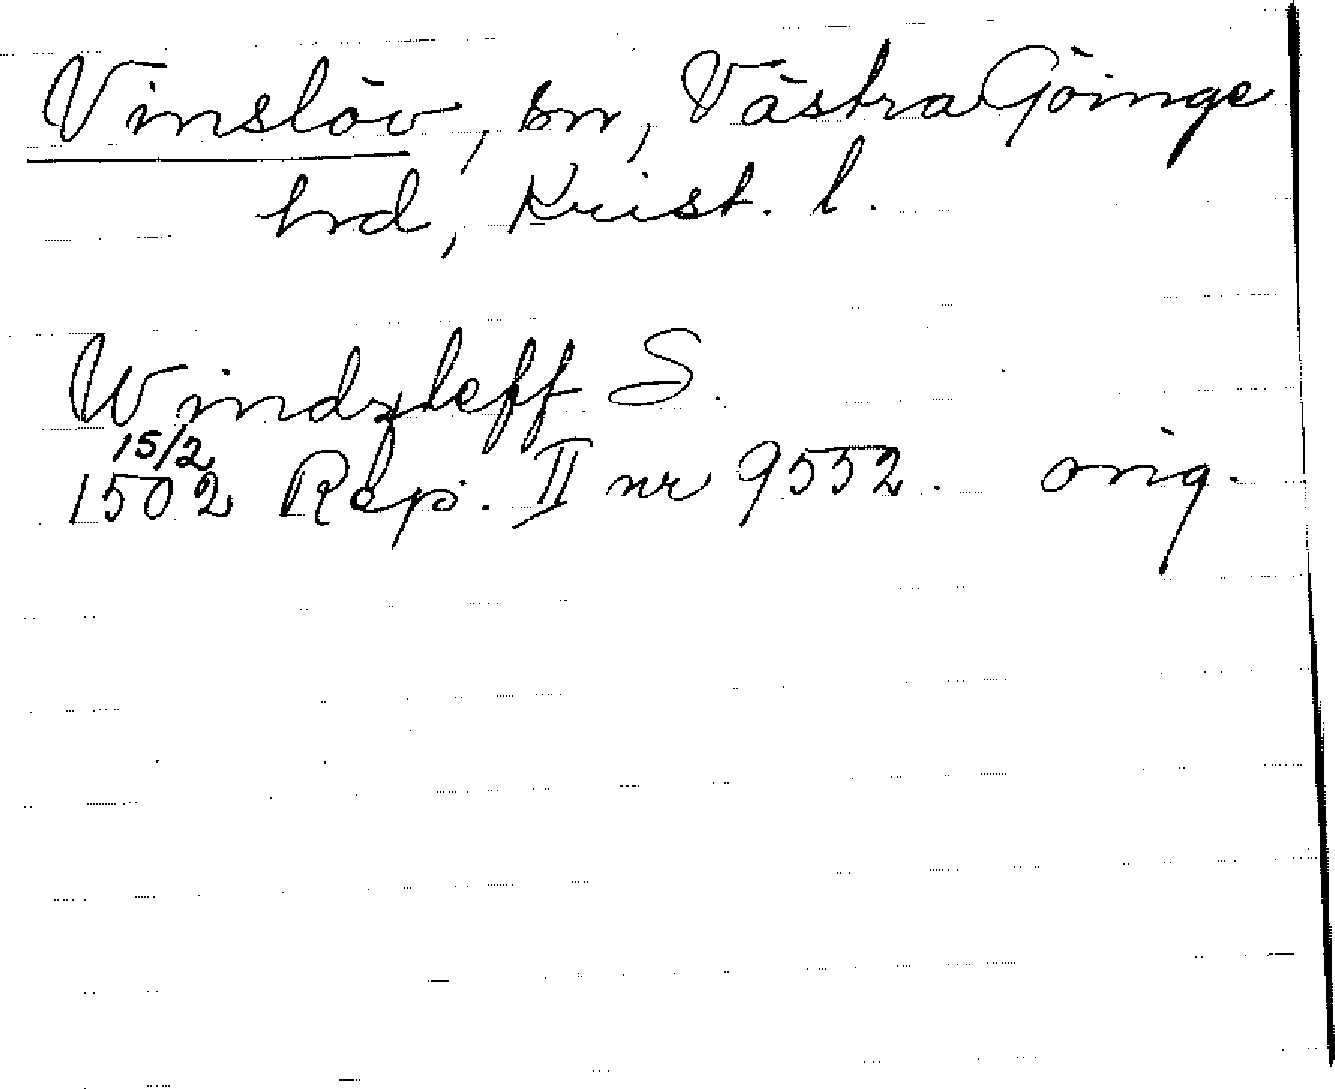 Vinslöv, sn, Västra Göinge
hrd, Krist. l.
Windzleff S.
15/2
1502 Rep. II nr 9552. orig.